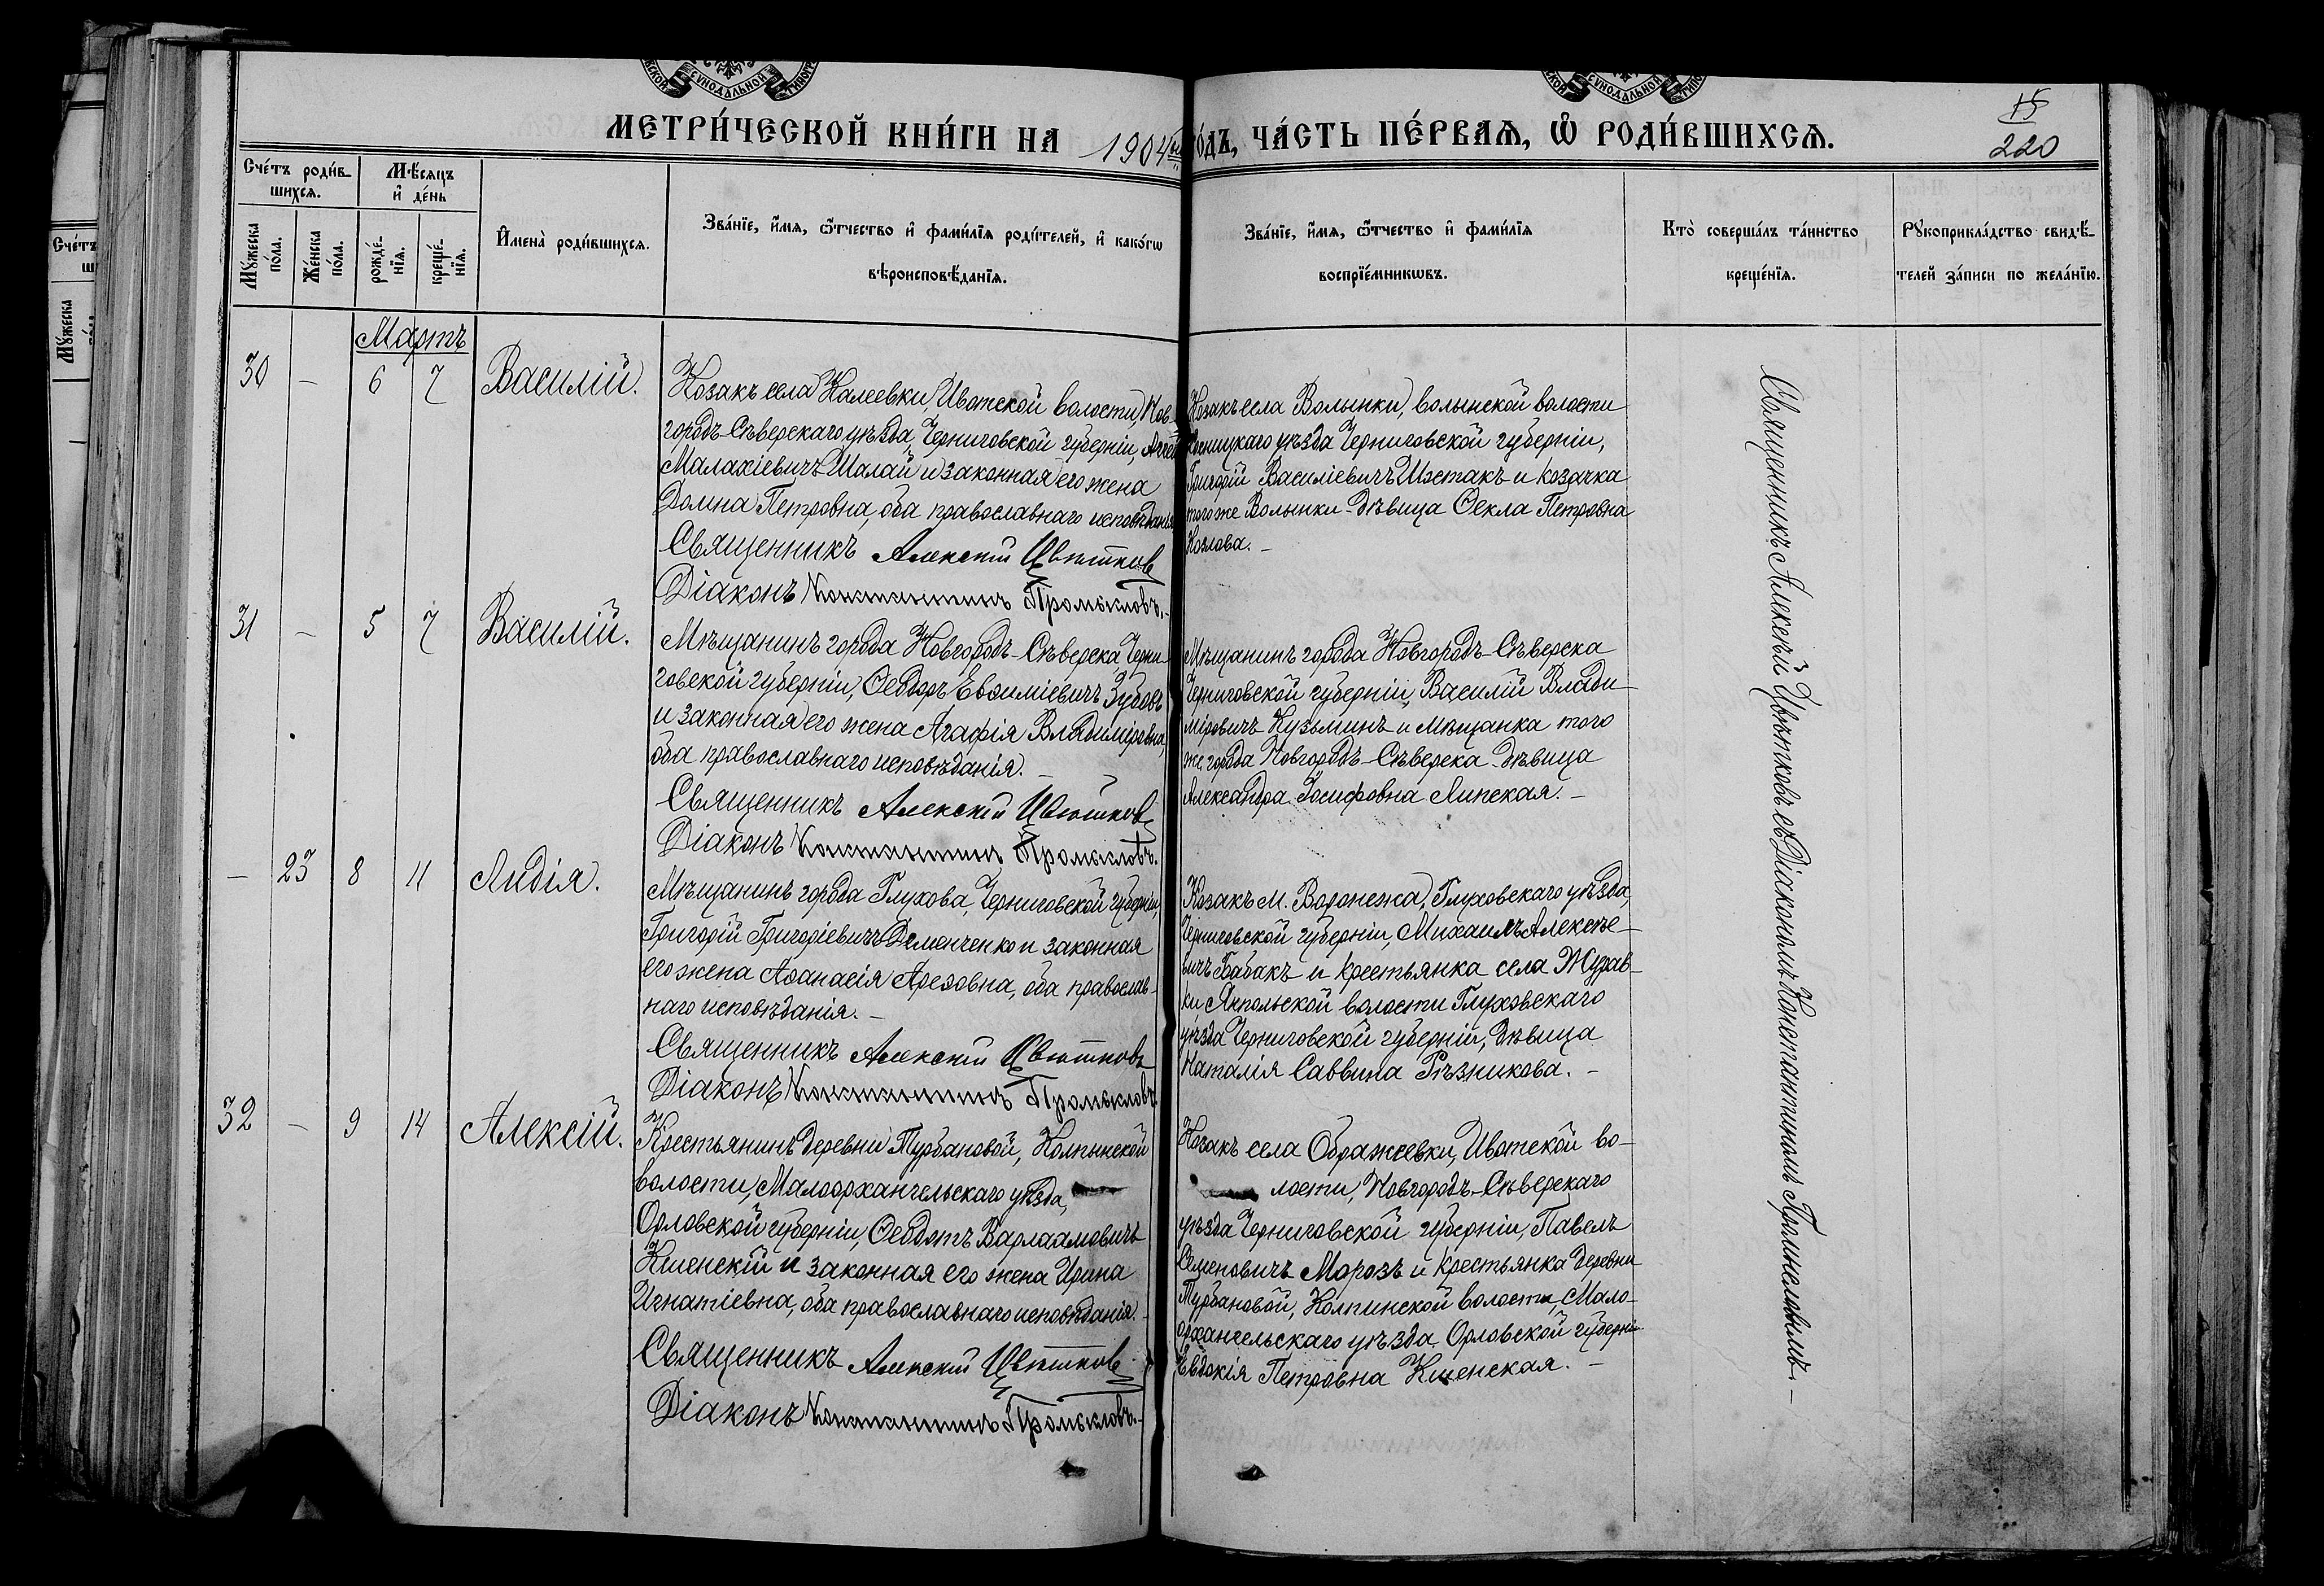 МЕТРИ́ЧЕСКОЙ КНИ́ГИ НА 1904 го́дъ, ЧА́СТЬ ПЕ́РВАЯ, Ѿ РОДИ́ВШИХСЯ.
15
220
Сче́тъ роди́в-
шихся.
Мѣ́сяцъ
и де́нь
Му́жеска
по́ла.
Же́нска
по́ла.
рожде́-
нїя.
креще́-
нїя.
Имена̀ роди́вшихся.
Зва́нїе, и́мя, ѻ́тчество и фами́лїя роди́телей, и како́гѡ
вѣроисповѣ́данїя.
Зва́нїе, и́мя, ѻ́тчество и фами́лїя
воспрїе́мникѡвъ.
Кто̀ соверша́лъ та́инство
креще́нїя.
Рукоприкла́дство свидѣ́-
телей за́писи по жела́нїю.
Мартъ
30 — 6 7 Василій.
Козакъ села Калеевки, Ивотской волости, Нов-
городъ-Сѣверскаго уѣзда, Черниговской губерніи,
Малахіевичъ Малай и законная его жена
Домна Петровна, оба православнаго исповѣданія
Священникъ Алексій Цвѣтков
Діаконъ Константинъ Промысловъ.-
Козакъ села Волынки, волынской волости
Сосницкаго уѣзда Черниговской губерніи,
Григорій Василіевичъ Шостакъ и козачка
того же Волынки-дѣвица Ѳекла Петровна
Козлова. —
31 — 5 7 Василій.
Мѣщанинъ города Новгородъ-Сѣверска Черни-
говской губерніи, Ѳеодоръ Евѳиміевичъ Зубовъ
и законная его жена Агафія Владиміровна,
оба православнаго исповѣданія. —
Священникъ Алексій Цвѣтков
Діаконъ Константинъ Промысловъ.
Мѣщанинъ города Новгородъ-Сѣверска
Черниговской губерніи, Василій Влади-
міровичъ Кузьминъ и мѣщанка того
же города Новгородъ-Сѣверска дѣвица
Александра Іосифовна Липская. —
— 23 8 11 Лидія.
Мѣщанинъ города Глухова, Черниговской губерніи,
Григорій Григоріевичъ Деменченко и законная
его жена Аѳанасія Ареѳовна, оба православ-
наго исповѣданія. —
Священникъ Алексій Цвѣтковъ
Діаконъ Константинъ Промысловъ
Козакъ м. Воронежа, Глуховскаго уѣзда,
Черниговской губерніи, Михаилъ Алексѣе-
вичъ Бабакъ и крестьянка села Журав-
ки Янпольской волости Глуховскаго
уѣзда Черниговской губерніи, дѣвица
Наталія Саввина Рѣзникова. —
32 — 9 14 Алексій.
Крестьянинъ деревни Турбановой, Колпынской
волости, Малоархангельскаго уѣзда,
Орловской губерніи, Ѳеодотъ Варлаамовичъ
Кшенскій и законная его жена Ирина
Игнатіевна, оба православнаго исповѣданія.
Священникъ Алексій Цвѣтков
Діаконъ Константинъ Промысловъ.-
Козакъ села Ображеевки, Ивотской во-
лости, Новгородъ-Сѣверскаго
уѣзда Черниговской губерніи, Павелъ
Семеновичъ Морозъ и крестьянка деревни
Турбановой, Колпинской волости, Мало-
архангельскаго уѣзда Орловской губерніи
Евдокія Петровна Кшенская. —
Священникъ Алексѣй Цвѣтковъ съ Діакономъ Константиномъ Промысловымъ. —